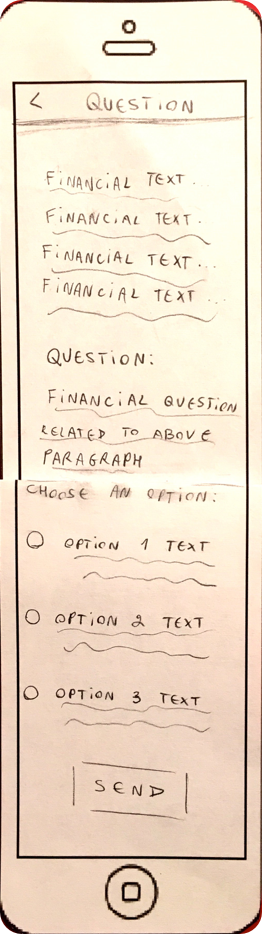 < QUESTION
FINANCIAL TEXT...
FINANCIAL TEXT.
FINANCIAL TEXT...
FINANCIAL TEXT...
QUESTION:
FINANCIAL QUESTION
RELATED TO ABOVE
PARAGRAPH
CHOOSE AN OPTION:
OPTION 1 TEXT
OPTION 2 TEXT
OPTION 3 TEXT
SEND